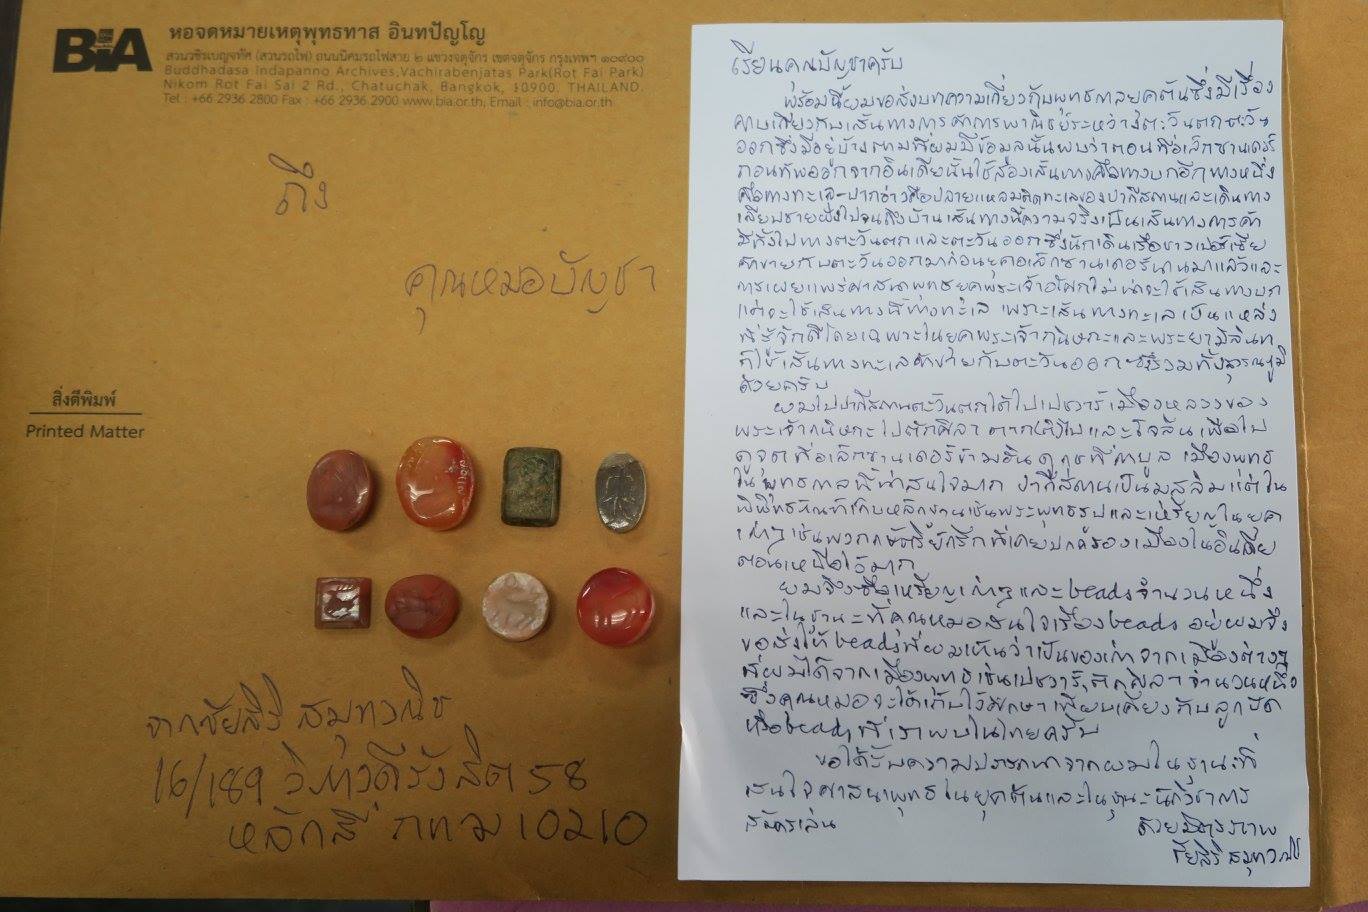 BIA
หอจดหมายเหตุพุทธทาส อินทปัญโญ
สวนวชิรเบญจทัศ (สวนรถไฟ) ถนนนิคมรถไฟสาย ๒ แขวงจตุจักร เขตจตุจักร กรุงเทพฯ ๑๐๙๐๐
Buddhadasa Indapanno Archives,Vachirabenjatas Park(Rot Fai Park)
Nikom Rot Fai Sai 2 Rd., Chatuchak, Bangkok, 10900. THAILAND.
Tel : +66 2936 2800 Fax : +66 2936 2900 www.bia.or.th, Email : info@bia.or.th
ถึง
คุณหมอบัญชา
สิ่งตีพิมพ์
Printed Matter
จากชัยสิริ สมุทวณิช
16/189 วิภาวดีรังสิต 58
หลักสี่ กทม 10210
เรียนคุณบัญชาครับ
พร้อมนี้ผมขอส่งบทความเกี่ยวกับพุทธกาลยุคต้นซึ่งมีเรื่อง
คาบเกี่ยวกับเส้นทางการค้าการพาณิชย์ระหว่างตะวันตกตะวัน
ออกซึ่งมีอยู่บ้างตามที่ผมมีข้อมูลนั้นพบว่าตอนที่อเล็กซานเดอร์
ถอนทัพออกจากอินเดียนั้นใช้สองเส้นทางคือทางบกอีกทางหนึ่ง
คือทางทะเล-ปากอ่าวคือปลายแหลมติดทะเลของปากีสถานและเดินทาง
เลียบชายฝั่งไปจนถึงบ้านเส้นทางนี้ความจริงเป็นเส้นทางการค้า
มีทั้งไปทางตะวันตกและตะวันออกซึ่งนักเดินเรือชาวเปอร์เซีย
ค้าขายกับตะวันออกมาก่อนยุคอเล็กซานเดอร์นานมาแล้วและ
การเผยแพร่ศาสนาพุทธยุคพระเจ้าอโศกไม่น่าจะใช้เส้นทางบก
แต่จะใช้เส้นทางนี้ทางทะเล เพราะเส้นทางทะเลเป็นแหล่ง
ที่รู้จักดีโดยเฉพาะในยุคพระเจ้ากนิษกะและพระยามิลินท
ก็ใช้เส้นทางทะเลค้าขายกับตะวันออก-ซึ่งรวมทั้งสุวรรณภูมิ
ด้วยครับ
ผมไปปากีสถานตะวันตกได้ไปเปชวาร์เมืองหลวงของ
พระเจ้ากนิษกะไปตักศิลา และ เพื่อไป
ดูจุดที่อเล็กซานเดอร์ข้าม เมืองพุทธ
ในพุทธกาลที่น่าสนใจมาก ปากีสถานเป็นมุสลิมแต่ใน
พิพิธภัณฑ์เก็บหลักฐานเช่นพระพุทธรูปและเหรียญในยุค
เก่าๆเช่นพวกกษัตริย์กรีกที่เคยปกครองเมืองในอินเดีย
ตอนเหนือไว้มาก
ผมจึงซื้อเหรียญเก่าๆและ beads จำนวนหนึ่ง
และในฐานะที่คุณหมอสนใจเรื่อง beads อยู่ผมจึง
ขอส่งให้ beads ที่ผมเห็นว่าเป็นของเก่าจากเมืองต่างๆ
ที่ผมได้จากเมืองพุทธเช่นเปชวาร์, ตักศิลา จำนวนหนึ่ง
ซึ่งคุณหมอจะได้เก็บไว้ศึกษาเทียบเคียงกับลูกปัด
หรือ beads ที่เราพบในไทยครับ
ขอได้รับความปรารถนาจากผมในฐานะที่
สนใจศาสนาพุทธในยุคต้นและในฐานะนักวิชาการ
สมัครเล่น
ด้วยมิตรภาพ
ชัยสิริ สมุทวณิช